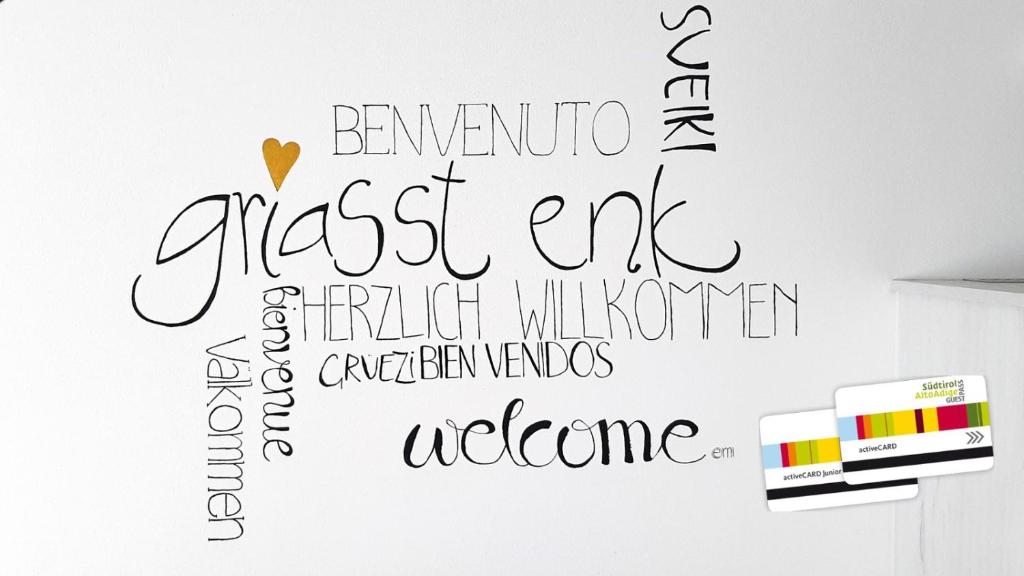 SVEIKI
BENVENUTO
griasst enk
HERZLICH WILLKOMMEN
bienvenue
GRÜEZI BIENVENIDOS
Välkommen
welcome
emi
Südtirol
AltoAdige
GUEST PASS
activeCARD
activeCARD Junior